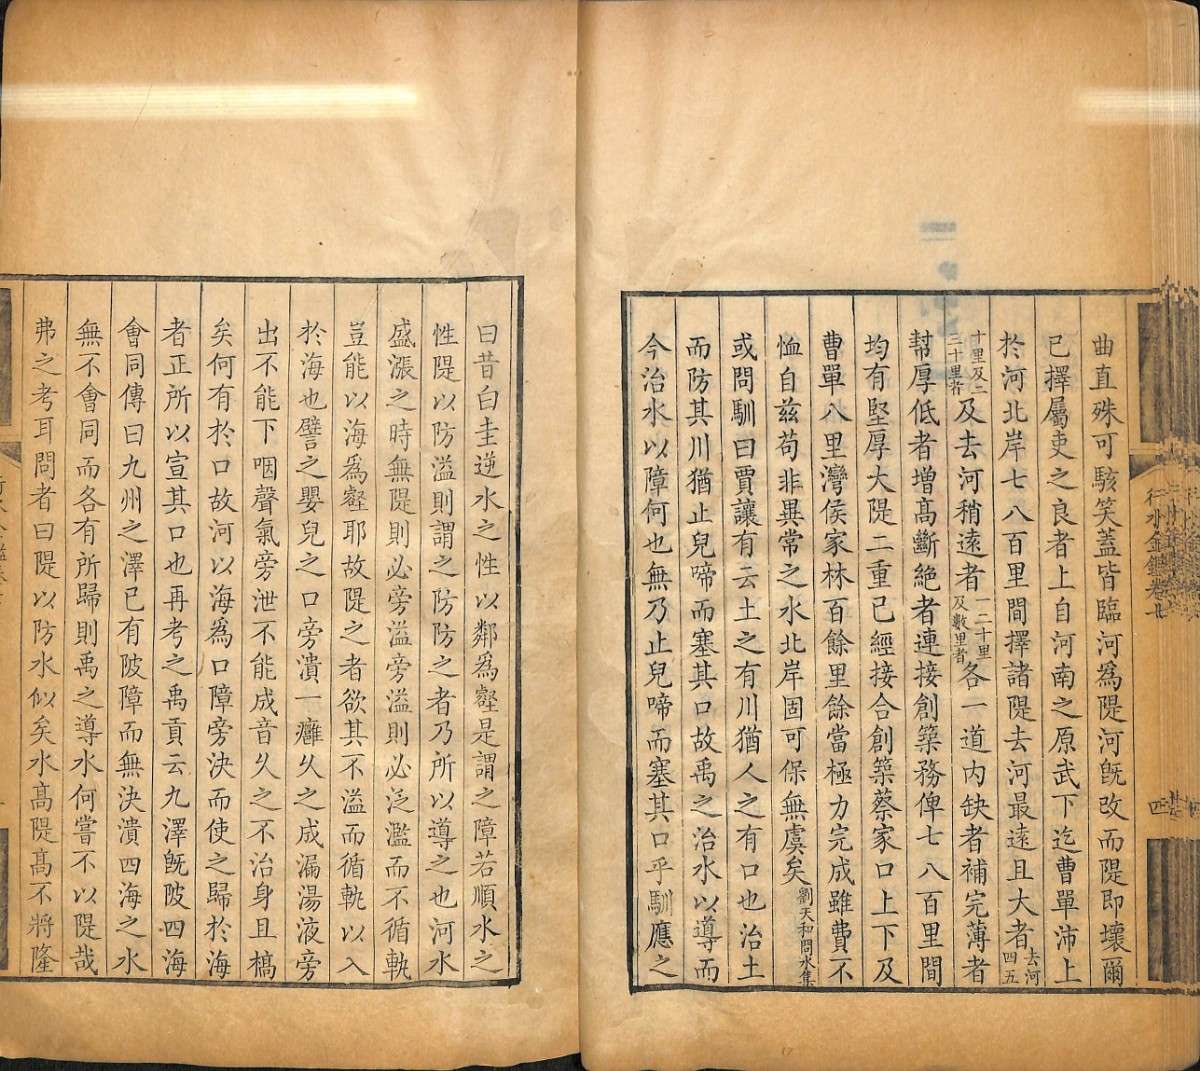 曲直殊可駭笑蓋皆臨河爲隄河旣改而隄即壞爾
已擇屬吏之良者上自河南之原武下迄曹單沛上
於河北岸七八百里間擇諸隄去河最遠且大者去河四五
十里及二三十里者及去河稍遠者一二十里及數里者各一道內缺者補完薄者
幫厚低者增高斷絕者連接創築務俾七八百里間
均有堅厚大隄二重已經接合創築蔡家口上下及
曹單八里灣侯家林百餘里餘當極力完成雖費不
恤自茲苟非異常之水北岸固可保無虞矣劉天和問水集
或問馴曰賈讓有云土之有川猶人之有口也治土
而防其川猶止兒啼而塞其口故禹之治水以導而
今治水以障何也無乃止兒啼而塞其口乎馴應之
行水金鑑卷廿
四
曰昔白圭逆水之性以鄰爲壑是謂之障若順水之
性隄以防溢則謂之防防之者乃所以導之也河水
盛漲之時無隄則必旁溢旁溢則必泛濫而不循軌
豈能以海爲壑耶故隄之者欲其不溢而循軌以入
於海也譬之嬰兒之口旁潰一癰久之成漏湯液旁
出不能下咽聲氣旁泄不能成音久之不治身且槁
矣何有於口故河以海爲口障旁決而使之歸於海
者正所以宣其口也再考之禹貢云九澤旣陂四海
會同傳曰九州之澤已有陂障而無決潰四海之水
無不會同而各有所歸則禹之導水何嘗不以隄哉
弗之考耳問者曰隄以防水似矣水高隄高不將隆